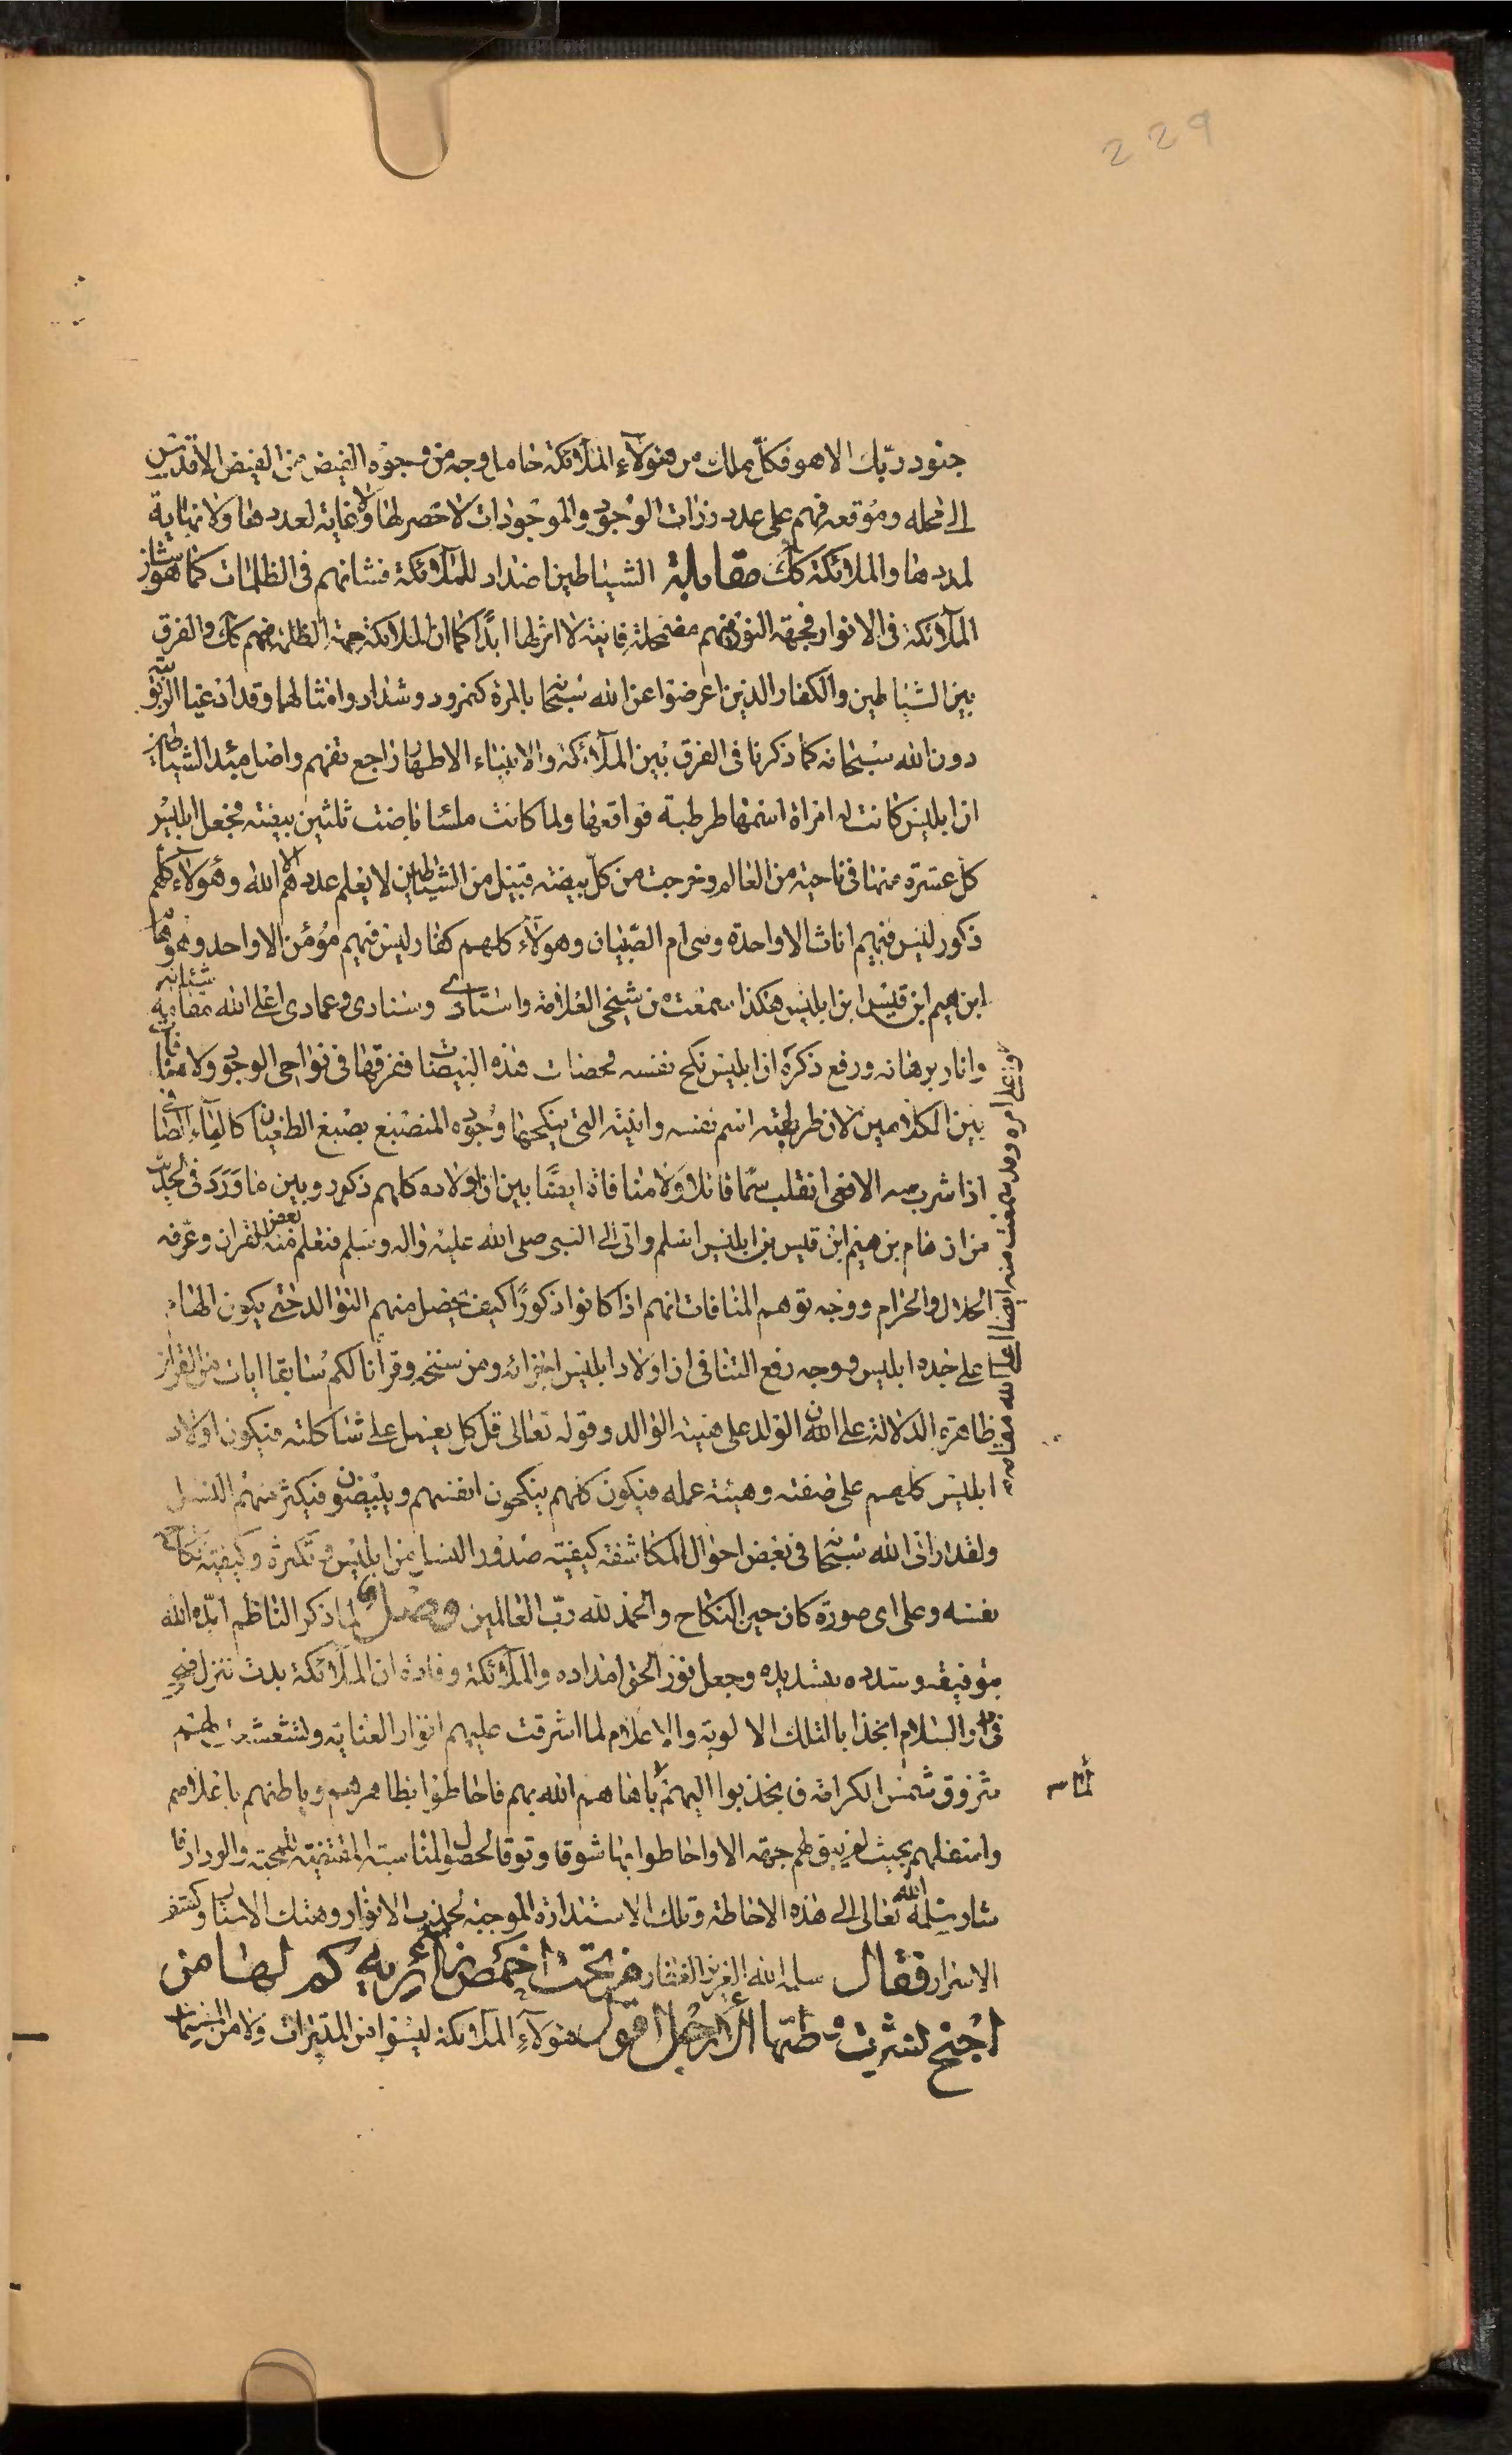 229
جنود ربك الا هو فكل ملك من هؤلاء الملائكة حامل وجه من وجوه الفيض من الفيض الاقدس
الى محله وموقعه فهم على عدد ذرات الوجود والموجودات لا حصر لها ولا غاية لعددها ولا نهاية
لمددها والملائكة كك مقابلة الشياطين اضداد للملائكة فشانهم في الظلمات كما هو شان
الملائكة في الانوار فجهة النور فيهم مضمحلة فانية لا اثر لها ابدًا كما ان الملائكة جهة الظلمة فيهم كك والفرق
بين الشياطين والكفار الذين اعرضوا عن الله سبحانه بالمرة كنمرود وشداد وامثالهما وقد ادعيا الربوبية
دون الله سبحانه كما ذكرنا في الفرق بين الملائكة والانبياء الاطهار راجع تفهم واصل مبدء الشياطين
ان ابليس كانت له امراة اسمها طرطبة فواقعها ولما كانت ملسا باضت ثلثين بيضة فجعل ابليس
كل عشرة منها في ناحية من العالم وخرجت من كل بيضة قبيل من الشياطين لا يعلم عددهم الا الله وهؤلاء كلهم
ذكور ليس فيهم اناثا الا واحدة وهي ام الصبيان وهؤلاء كلهم كفار ليس فيهم مؤمن الا واحد وهو هام
ابن هيم ابن قيس ابن ابليس هكذا سمعت من شيخي العلامة واستادي وسنادي وعمادي اعلى الله مقامه
وانار برهانه ورفع ذكره ان ابليس نكح نفسه فحصلت هذه البيضات ففرقها في نواحي الوجود ولا منافات
بين الكلامين لان طرطبة اسم نفسه وانيته التي ينكحها وجوده المنصبغ بصبغ الطغيان كالماء الصافي
اذا شرب منه الافعى انقلب سما قاتلا ولا منافاة ايضا بين ان اولاده كلهم ذكور وبين ما ورد في الحديث
من ان هام بن هيم ابن قيس بن ابليس اسلم واتى الى النبي صلى الله عليه واله وسلم فتعلم منه بعض القران وعرفه
الحلال والحرام ووجه توهم المنافات انهم اذا كانوا ذكورًا كيف يحصل منهم التوالد حتى يكون لهام
على جده ابليس ووجه رفع التنافي ان اولاد ابليس اجزائه ومن سنخه وقرانا لكم سابقا ايات من القران
ظاهرة الدلالة على ان التولد على هيئة الوالد وقوله تعالى قل كل يعمل على شاكلته فيكون اولاد
ابليس كلهم على صفته وهيئة عمله فيكون كلهم ينكحون انفسهم ويبيضون فيكثر منهم النسل
ولقد اراني الله سبحانه في بعض احوال المكاشفة كيفية صدور النسل من ابليس وتكثره وكيفية نكاح
نفسه وعلى اي صورة كان حين النكاح والحمد لله رب العالمين وصل لما ذكر الناظم ايده الله
بتوفيقه وسدده بتسديده وجعل نور الحق امداده والملائكة ان الملائكة بدت تنزل
والسلام انجذابا لتلك الالوية والاعلام لما اشرقت عليهم انوار العناية ولشعشعت لهم
شروق شمس الكرامة فانجذبوا اليهم بما هم الله بهم فاحاطوا بظاهرهم وباطنهم باعلاهم
واسفلهم بحيث لم يبق لهم جهة الا واحاطوا بها شوقا وتوقا لحصول المناسبة المقتضية للمحبة والوداد
اشار سلمه الله تعالى الى هذه الاحاطة وتلك الاستدارة الموجبة لجذب الانوار وهتك الاستار وكشف
الاسرار فقال سلمه الله العزيز الغفار من تحت اخمص زائريه كم لها من
اجنح نشرت وطتها الارجل اقول هؤلاء الملائكة ليسوا من المدبرات ولا من المسبحات